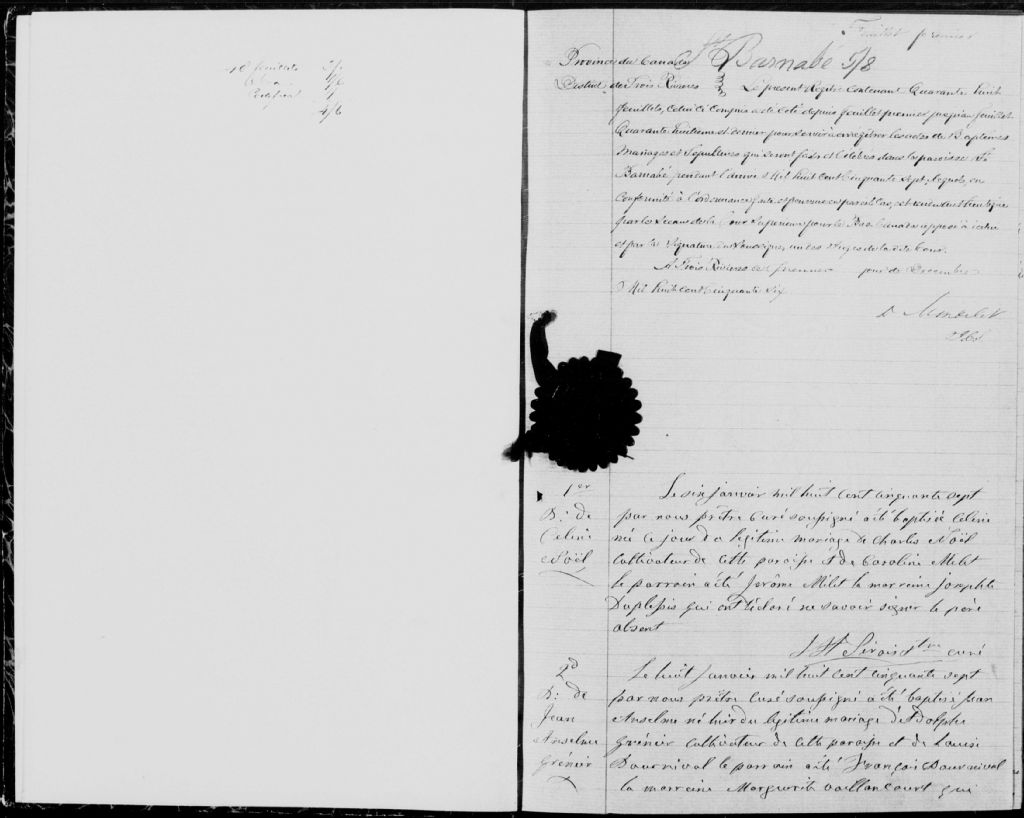 48 feuillets 3/.
1/6
Certificat 1/
Feuillet premier
St Barnabé 5/8
Province du Canada
District des Trois Rivieres } Le présent Régistre Contenant Quarante huit
feuillets, Celui Ci Compris a été Coté depuis feuillet premier jusqu'au feuillet
Quarante huitieme et dernier pour servir à enregistrer les actes de Baptêmes
Mariages et Sépultures qui seront faits et Célébrés dans la paroisse St
Barnabé pendant l'année Mil huit Cent Cinquante Sept; lequel, en
Conformité à l'ordonnance faite et pourvue en pareil Cas, est
par le Sceau de la Cour Superieure pour le Bas Canada apposé à icelui
et par la Signature du Soussigné, un des Juges de la dite Cour.
A Trois Rivieres ce premier jour de Decembre
Mil huit Cent Cinquante Six
1er
B: de
Celine
Noël
Le six janvier mil huit cent cinquante sept
par nous prêtre Curé soussigné a été baptisé Celine
né ce jour du légitime mariage de Charles Noël
Cultivateur de cette paroisse et de Caroline Milet
le parrain a été Jerôme Milet la marreine josephte
Duplessis qui ont déclaré ne savoir signer le père
absent
J H Sirois Ptre curé
2d
B: de
Jean
Anselme
Grénier
Le huit Janvier mil huit cent cinquante sept
par nous prêtre curé soussigné a été baptisé jean
Anselme né hier du légitime mariage d'Adolphe
Grénier cultivateur de cette paroisse et de Louise
Bournival le parrain a été François Bournival
la marreine Marguerite Vaillancourt qui